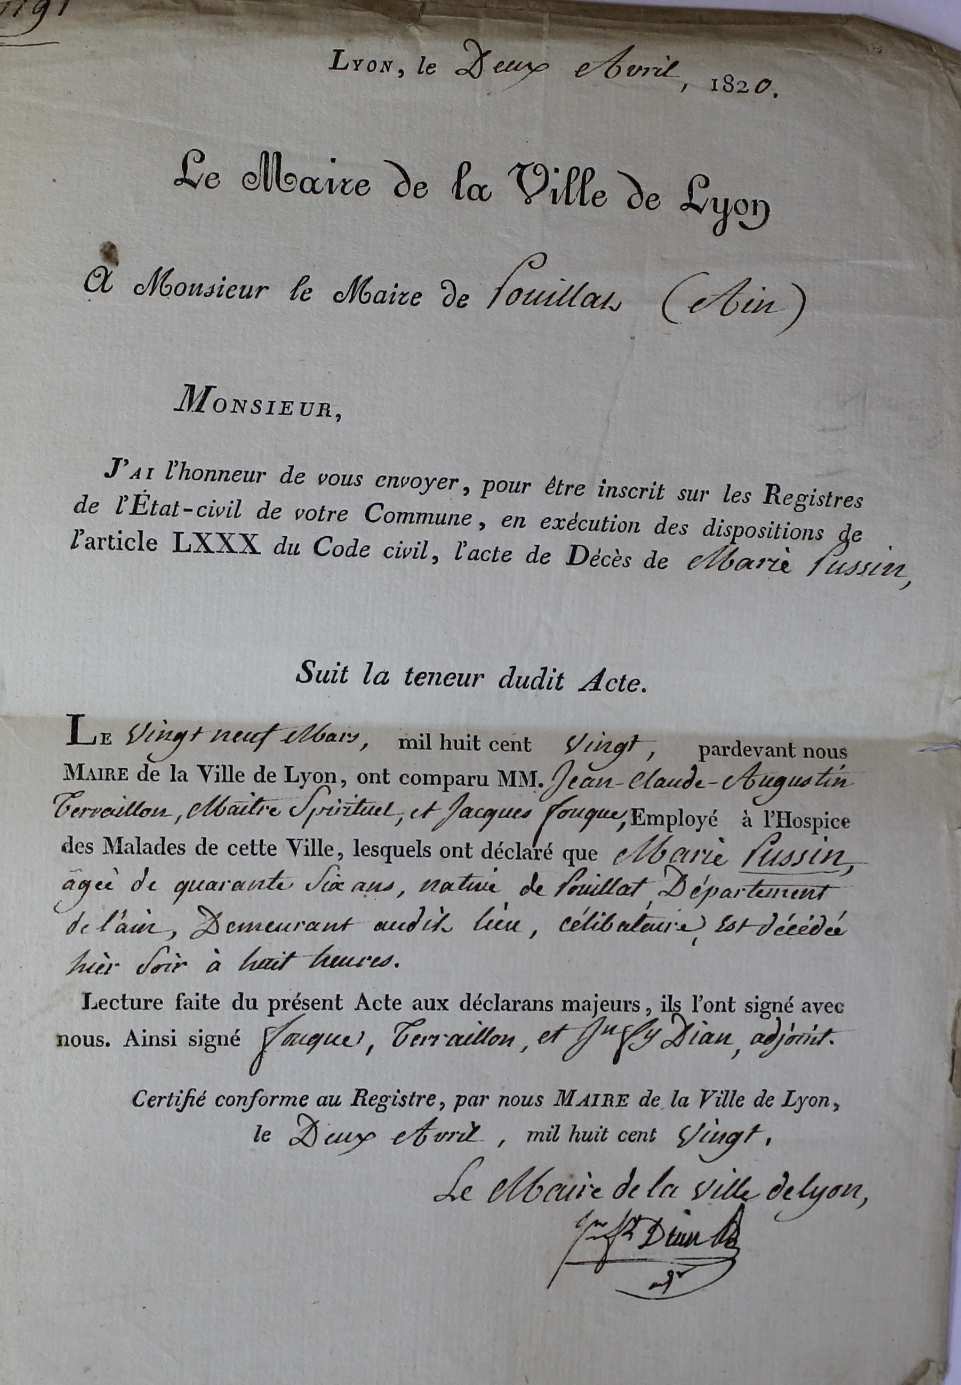 1791
Lyon, le Deux Avril, 1820.
Le Maire de la Ville de Lyon
A Monsieur le Maire de Pouillat (Ain)
Monsieur,
J'ai l'honneur de vous envoyer, pour être inscrit sur les Registres
de l'État-civil de votre Commune, en exécution des dispositions de
l'article LXXX du Code civil, l'acte de Décès de Marie Pussin,
Suit la teneur dudit Acte.
Le Vingt neuf Mars, mil huit cent Vingt, pardevant nous
Maire de la Ville de Lyon, ont comparu MM. Jean-Claude-Augustin
Terraillon, Maître Spirituel, et Jacques fouque, Employé à l'Hospice
des Malades de cette Ville, lesquels ont déclaré que Marie Pussin,
agée de quarante Six ans, native de Pouillat, Département
de l'ain, Demeurant audit lieu, célibataire, Est décédée
hier Soir à huit heures.
Lecture faite du présent Acte aux déclarans majeurs, ils l'ont signé avec
nous. Ainsi signé fouque, Terraillon, et Dian, adjoint.
Certifié conforme au Registre, par nous Maire de la Ville de Lyon,
le Deux Avril, mil huit cent Vingt.
Le Maire de la Ville de Lyon,
Dian